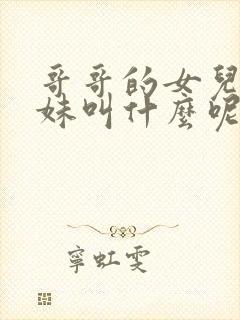 哥哥的女兒
妹叫什麼呢
寧虹雯